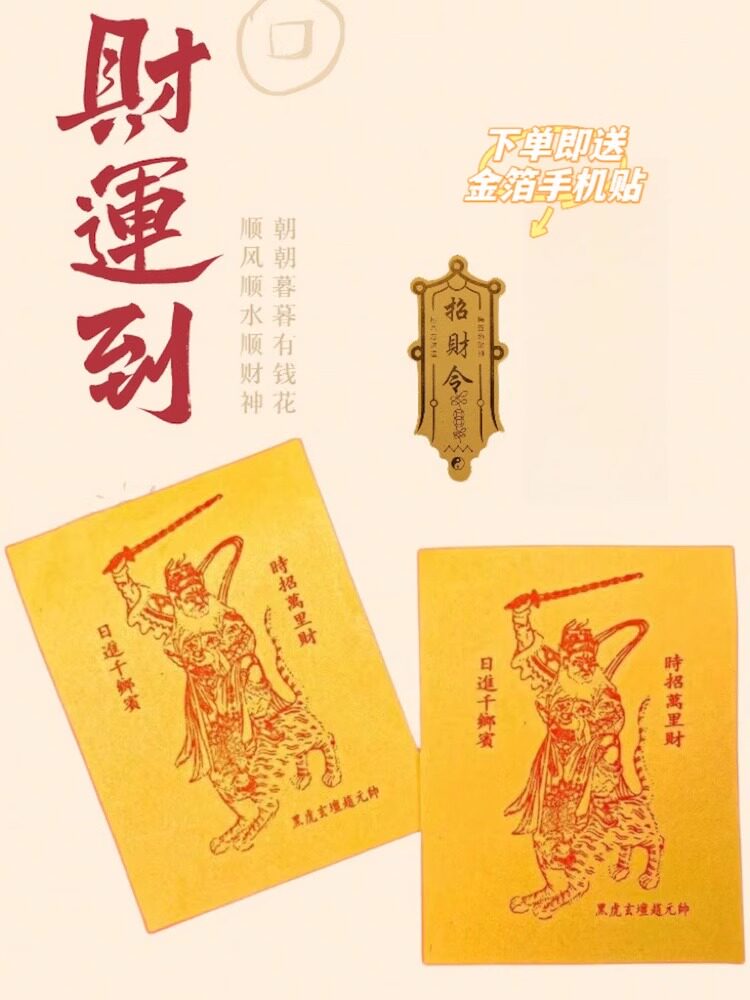 財運到
朝朝暮暮有钱花
顺风顺水顺财神
下单即送
金箔手机贴
招財令
時招萬里財
日進千鄉賓
黑虎玄壇趙元帥
時招萬里財
日進千鄉賓
黑虎玄壇趙元帥